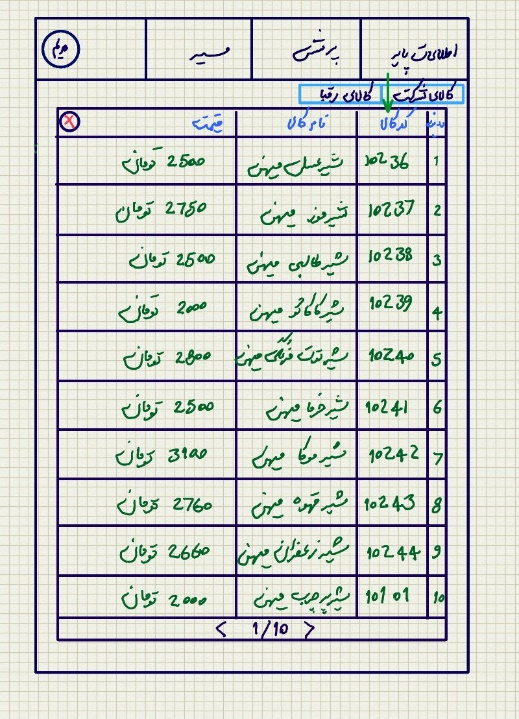 اطلاعات پایه پرسش مسیر مریم
کالای شرکت کالای رقبا
ردیف کد کالا نام کالا قیمت
1 10236 شیر عسل میهن 2500 تومان
2 10237 شیر موز میهن 2750 تومان
3 10238 شیر طالبی میهن 2500 تومان
4 10239 شیر کاکائو میهن 2000 تومان
5 10240 شیر توت فرنگی میهن 2800 تومان
6 10241 شیر خرما میهن 2500 تومان
7 10242 شیر موکا میهن 3100 تومان
8 10243 شیر قهوه میهن 2760 تومان
9 10244 شیر زعفران میهن 2660 تومان
10 10101 شیر پرچرب میهن 2000 تومان
< 1/10 >